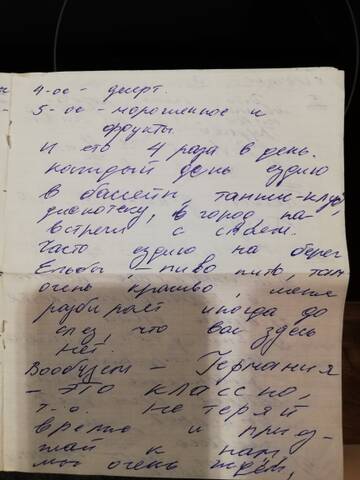 4-ое - десерт.
5-ое - мороженное и
фрукты
И ето 4 раза в день.
каждый день ездию
в бассейн, танцк-клуб,
дискотеку, в город, на
встречи с
Часто ездию на берег
Ельбы - пиво пить, там
очень красиво, меня
разбирает иногда до
слез, что вас здесь
нет.
Вообщем - Германия
- это классно,
т.о. не теряй
время и приез-
жай к нам,
мы очень ждём,